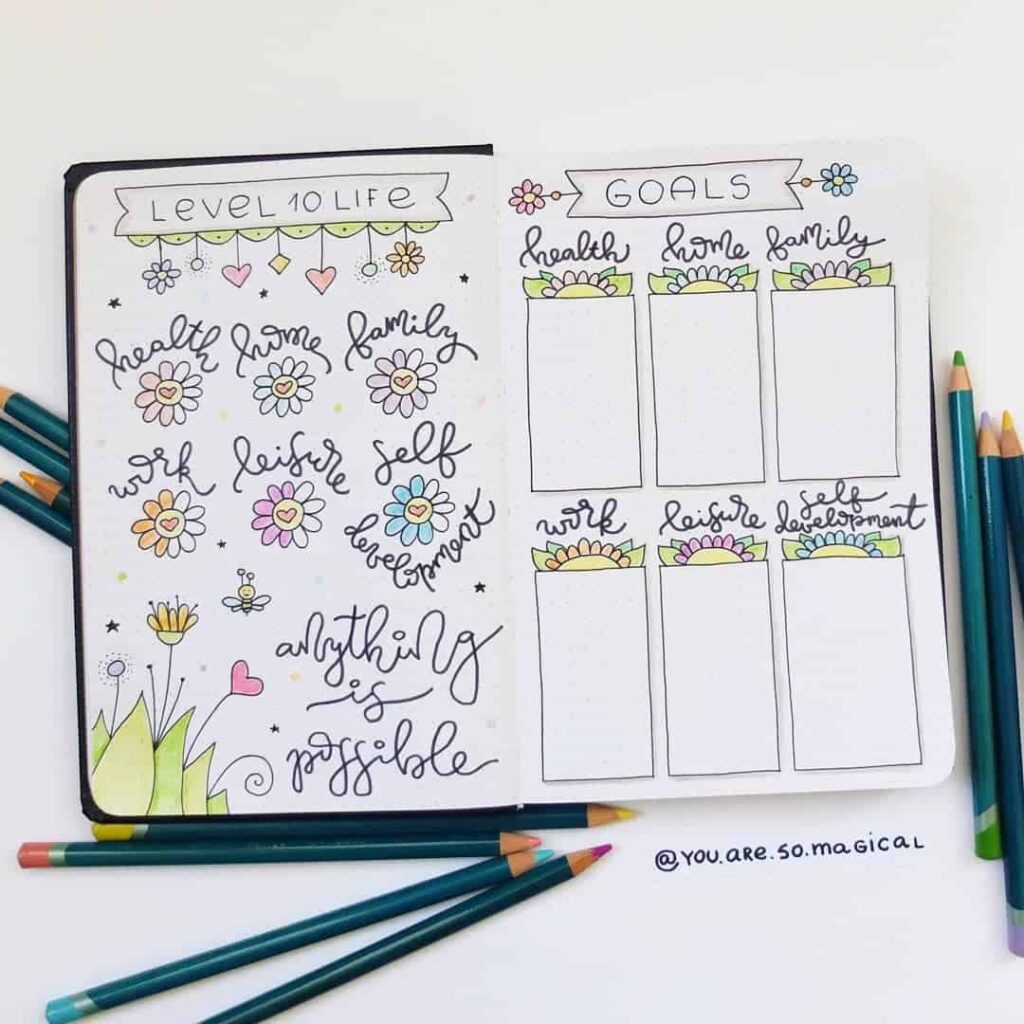 LEVEL 10 LIFE
health home family
work leisure self development
anything
is
possible
GOALS
health home family
work leisure self development
@YOU.ARE.SO.MAGICAL